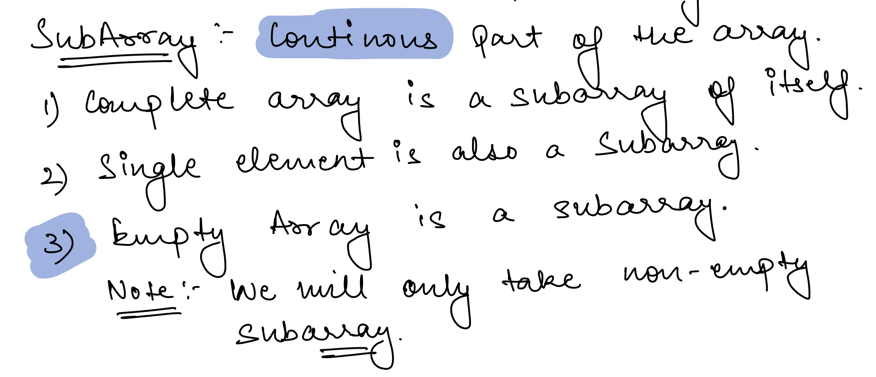 SubArray :- Continous part of the array.
1) Complete array is a subarray of itself.
2) Single element is also a Subarray.
3) Empty Array is a subarray.
Note :- We will only take non-empty
subarray.